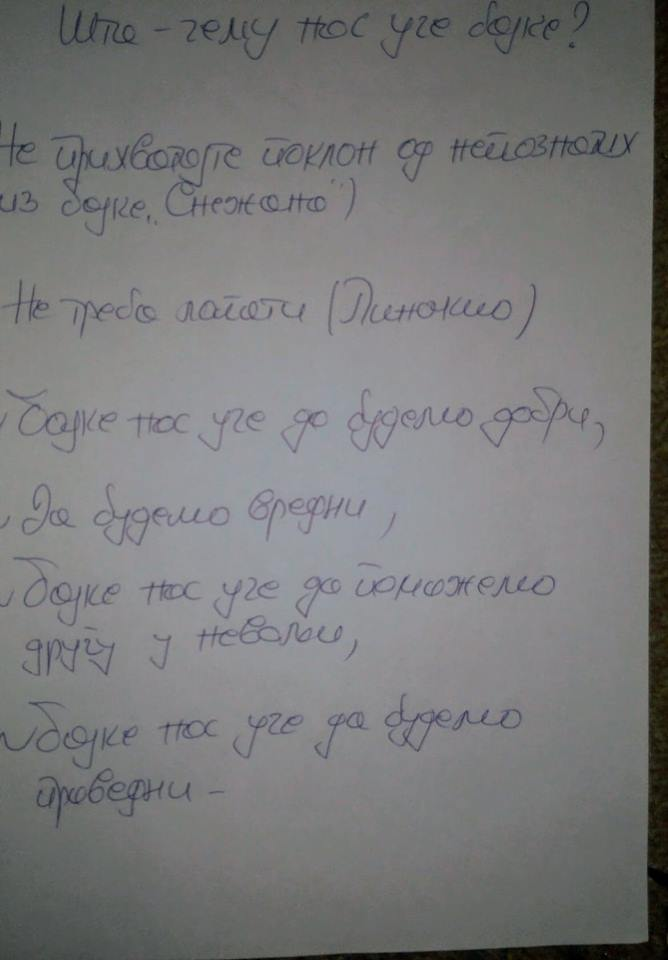 Шта - чему нас уче бајке?
Не прихватајте поклон од непознатих
из бајке „Снежана")
Не треба лагати (Пинокио)
Бајке нас уче да будемо добри,
Да будемо вредни,
Бајке нас уче да поможемо
другу у невољи,
Бајке нас уче да будемо
праведни -